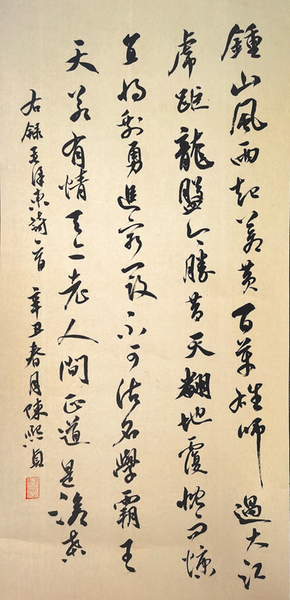 鍾山風雨起蒼黃百萬雄師過大江
虎踞龍盤今勝昔天翻地覆慨而慷
宜將剩勇追窮寇不可沽名學霸王
天若有情天亦老人間正道是滄桑
右錄毛澤東詩一首 辛丑春月陳熙貞